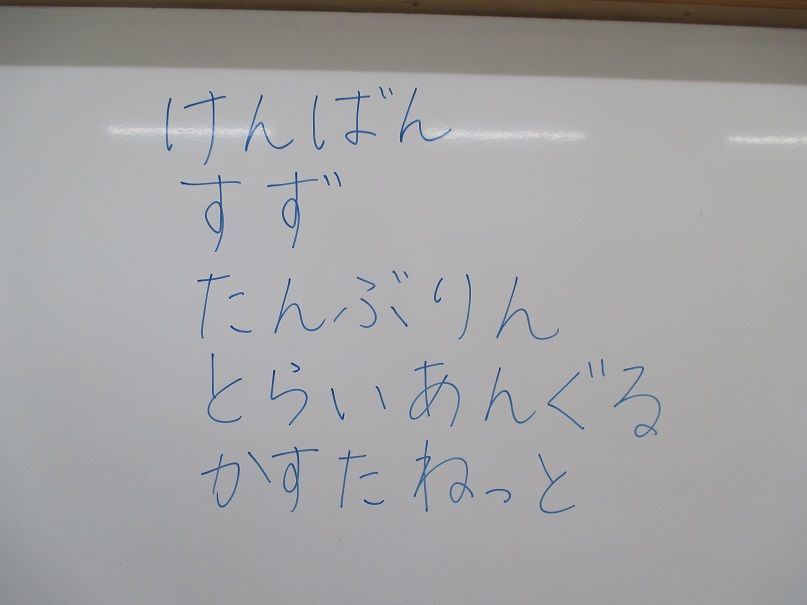 けんばん
すず
たんぶりん
とらいあんぐる
かすたねっと